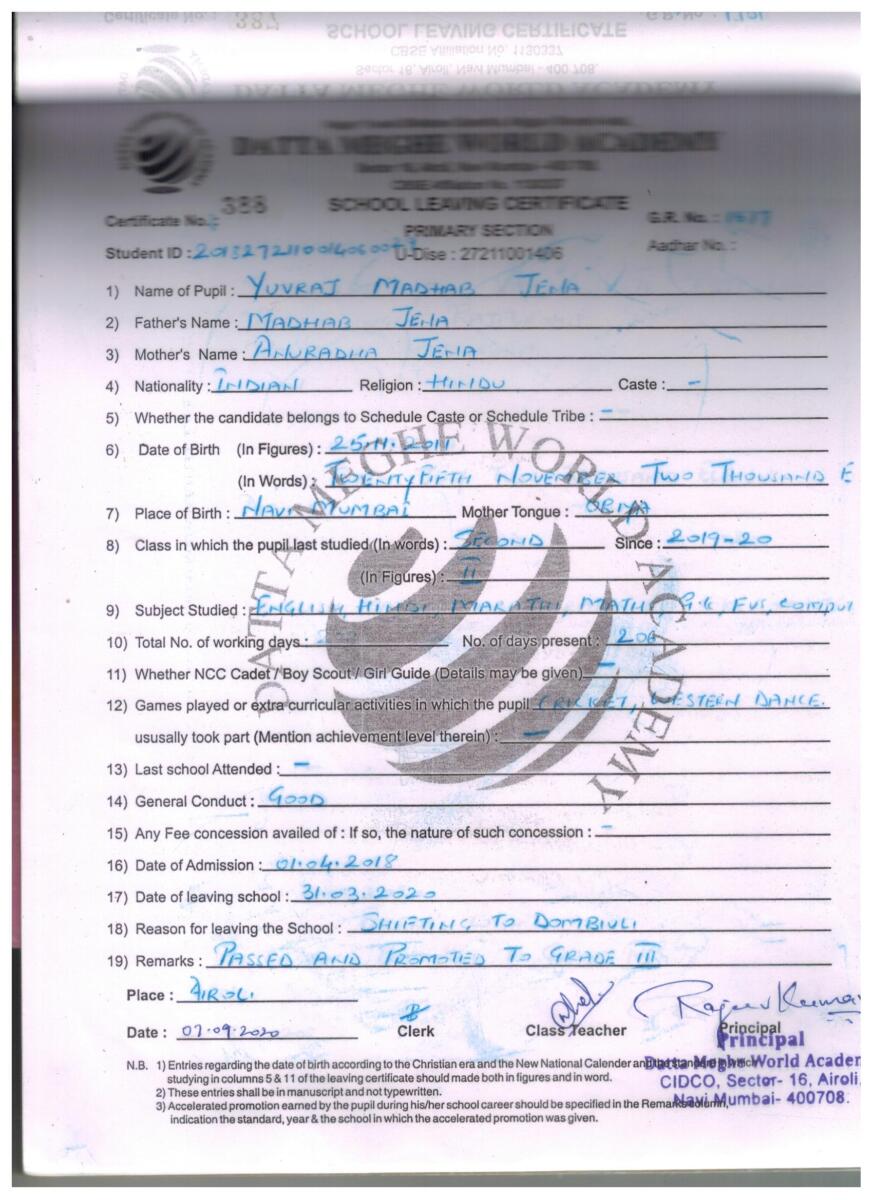 Certificate No.: 387
SCHOOL LEAVING CERTIFICATE
CBSE Affiliation No. 1130337
Sector 16, Airoli, Navi Mumbai - 400 708.
DATTA MEGHE WORLD ACADEMY
DATTA MEGHE WORLD ACADEMY
SCHOOL LEAVING CERTIFICATE
Certificate No.: 388 G.R. No. :
PRIMARY SECTION
Student ID : U-Dise : 27211001406 Aadhar No. :
1) Name of Pupil : YUVRAJ MADHAB JENA
2) Father's Name : MADHAB JENA
3) Mother's Name : ANURADHA JENA
4) Nationality : INDIAN Religion : HINDU Caste : -
5) Whether the candidate belongs to Schedule Caste or Schedule Tribe : -
6) Date of Birth (In Figures) : 25.11.2011
(In Words) : TWENTYFIFTH NOVEMBER TWO THOUSAND E
7) Place of Birth : NAVI MUMBAI Mother Tongue : ORIYA
8) Class in which the pupil last studied (In words) : SECOND Since : 2019-20
(In Figures) : II
9) Subject Studied : ENGLISH, HINDI, MARATHI, MATH, G.K, EVS, COMPUT
10) Total No. of working days : No. of days present : 206
11) Whether NCC Cadet / Boy Scout / Girl Guide (Details may be given) -
12) Games played or extra curricular activities in which the pupil CRICKET, WESTERN DANCE.
ususally took part (Mention achievement level therein) : -
13) Last school Attended : -
14) General Conduct : GOOD
15) Any Fee concession availed of : If so, the nature of such concession : -
16) Date of Admission : 01.04.2018
17) Date of leaving school : 31.03.2020
18) Reason for leaving the School : SHIFTING TO DOMBIVLI
19) Remarks : PASSED AND PROMOTED TO GRADE III
Place : AIROLI
Rajeev Kumar
Date : 07.09.2020 Clerk Class Teacher Principal
Principal
Datta Meghe World Academ
CIDCO, Sector- 16, Airoli,
Navi Mumbai- 400708.
N.B. 1) Entries regarding the date of birth according to the Christian era and the New National Calender and the standard in which
studying in columns 5 & 11 of the leaving certificate should made both in figures and in word.
2) These entries shall be in manuscript and not typewritten.
3) Accelerated promotion earned by the pupil during his/her school career should be specified in the Remarks column,
indication the standard, year & the school in which the accelerated promotion was given.
DATTA MEGHE WORLD ACADEMY